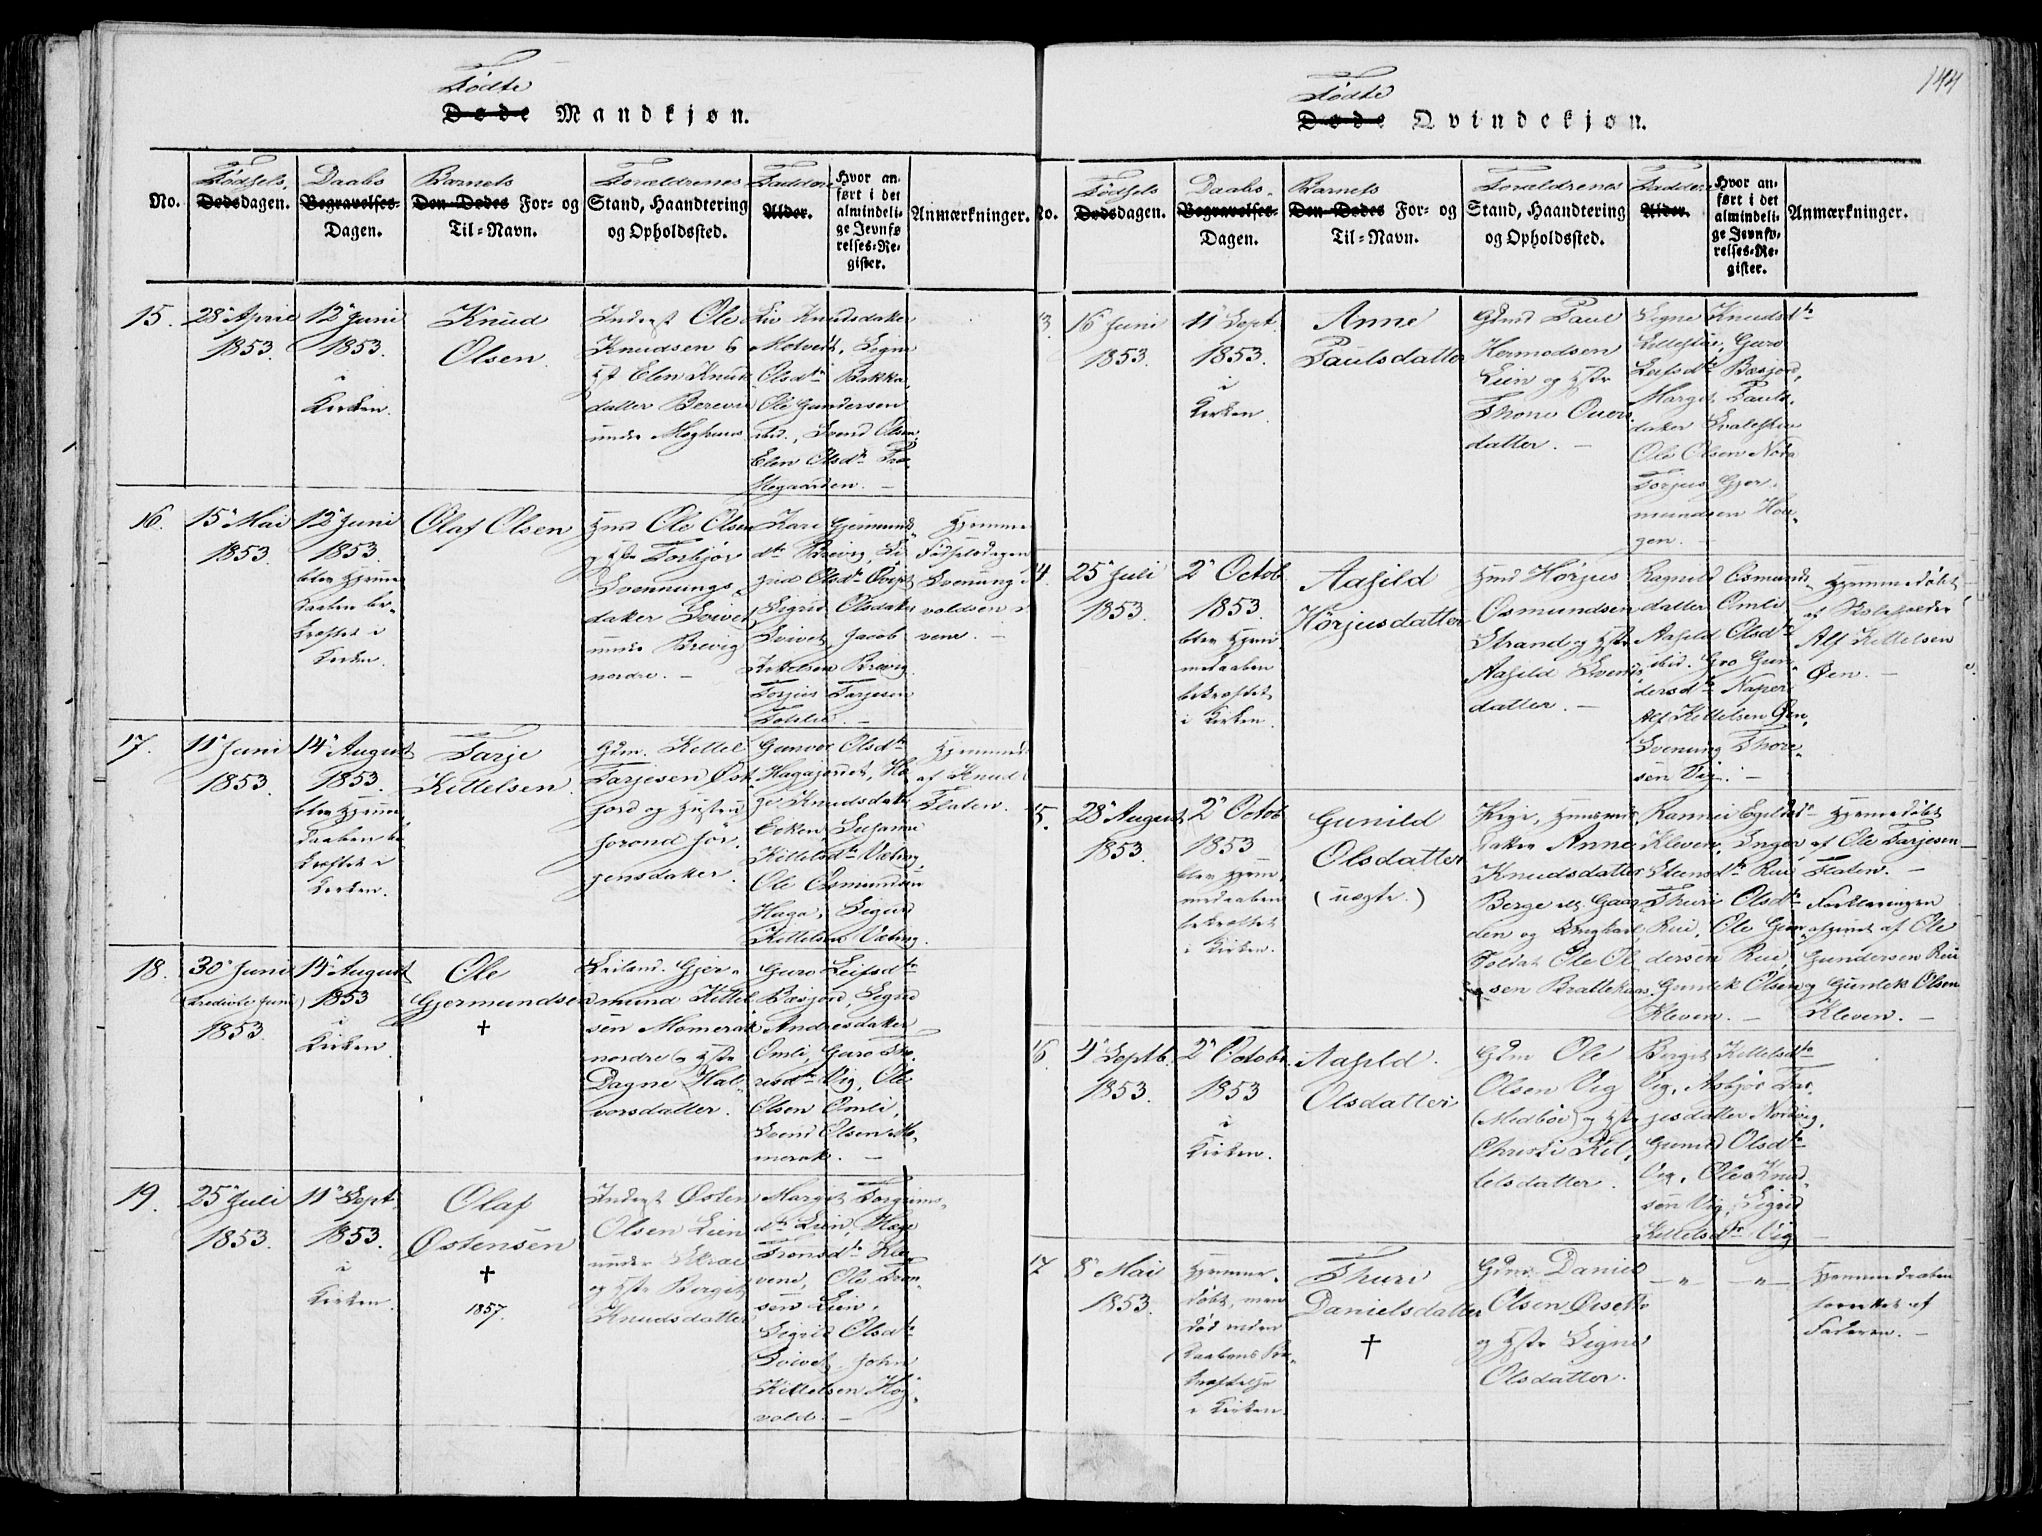 144
Fødte
Døde Mandkjøn.
No.
Fødsels
Dødsdagen.
Daabs
Begravelses-
Dagen.
Barnets
Den Dødes For- og
Til-Navn.
Forældrenes
Stand, Haandtering
og Opholdssted.
Faddere
Alder.
Hvor an-
ført i det
almindeli-
ge Jevnfø-
relses-Re-
gister.
Anmærkninger.
15.
28 April
1853.
12 Juni
1853.
i
Kirken.
Knud
Olsen.
Inderst Ole
Knudsen
datter
under
Knudsdatter
Signe
Olsdtr Bakka
Ole Gundersen
ibid., Svend Olsen
Elen Olsdtr Præ-
stegaarden. —
16.
15 Mai
1853.
12 Juni
1853.
blev Hjemme
daaben be-
kræftet i
Kirken.
Olaf Olsen
Hmd Ole Olsen
og Hstr Torbjør
Svennungs-
datter
under Brevig
nordre. —
Kari Gjermunds
dtr Brevig,
Olsdtr
Sigrid Olsdatter
Jacob
Kittelsen Brevig
Torjus Tarjesen
Hjemme
Fødselsdagen
Svenung
17.
11 Juni
1853.
14 August
1853.
blev Hjemme
daaben be
kræftet i
Kirken.
Tarje
Kittelsen.
Gdm. Kittel
Tarjesen Øst-
jord og Hustru
Jorond Jør-
gensdatter.
Gunvor Olsdtr
Knudsdatter
Eeken, Susanne
Kittelsdtr
Ole Osmundsen
Haga, Sigurd
Kittelsen
Hjemmed
af Knud
Flaten.
18.
30 Juni
(tredivte Juni)
1853.
14 August
1853
i
Kirken.
Ole
Gjermundsen
†
Leiland. Gjer-
mund Kittel
sen Momrak
nordre og Hstr
Dagne Hal-
vorsdatter.
Guro Leifsdtr
Bæsjord, Sigrid
Andresdatter
Omli, Guro Tho-
resdtr Vig, Ole
Olsen Omli,
Svend Olsen Mo-
merak. —
19.
25 Juli
1853.
11 Sept.
1853.
i
Kirken.
Olaf
Østensen
†
1857.
Inderst Østen
Olsen Lien
under
og Hstr Bergit
Knudsdatter
Margit Torgrims-
dtr Lien, Hæge
Tronsdtr Kle-
vene, Ole Tron-
søn Lien,
Sigrid Olsdtr
John
Kittelsen Høg-
vold. —
Fødte
Døde Qvindekjøn.
No.
Fødsels
Dødsdagen.
Daabs-
Begravelses-
Dagen.
Barnets
Den Dødes For- og
Til-Navn.
Forældrenes
Stand, Haandtering
og Opholdssted.
Faddere
Alder.
Hvor an-
ført i det
almindeli-
ge Jevnfø-
relses-Re-
gister.
Anmærkninger.
13.
16 Juni
1853.
11 Sept.
1853.
i
Kirken.
Anne
Paulsdatter
Gdmd Paul
Hermodsen
Lien og Hstr
Thone Overs-
datter. —
Signe Knudsdtr
Guro
Leifsdtr Bæsjord,
Margit Pauls-
datter
Ole Olsen
Torjus Gjer-
mundsen Hou-
gen. —
14.
25 Juli
1853.
2 Octob.
1853.
blev Hjem
medaaben
bekræftet
i Kirken.
Aashild
Hørjusdatter
Hmd Hørjus
Osmundsen
Strand og Hstr
Aashild Svends
datter. —
Ragnild Osmunds
datter Omli
Aashild Olsdtr
ibid. Gro Gun-
dersdtr Naper
Alf Kittelsen Øen,
Svenung Thore-
sen Vig. —
Hjemmedøbt
af Skoleholder
Alf Kittelsen
Øen. —
15.
28 August
1853.
2 Octob.
1853
blev Hjem-
medaaben
bekræftet
i Kirken.
Gunild
Olsdatter
(uægte.)
Pige, Huusmds
datter Anne
Knudsdatter
Berge
den og Ungkarl
Soldat Ole Ol-
sen Brattekaas.
Rannei
Kleven, Inger
Steensdtr Rui
Thuri Olsdtr
Rui, Ole Gun-
dersen Rui,
Gunlek Olsen
Kleven. —
Hjemmedøbt
af Ole Tarjesen
Flaten. —
Forklaringen
afgivet af Ole
Gundersen Rui
og Gunlek Olsen
Kleven. —
16.
4 Septb.
1853.
2 Octobr.
1853
i
Kirken.
Aashild
Olsdatter
Gdm Ole
Olsen Vig
(Medbøe) og Hstr
Christi Kit-
telsdatter.
Bergit Kittelsdtr
Vig, Asbjør Tar-
jesdatter Nordvig,
Gunild Olsdtr
Vig, Ole Knud-
søn Vig, Sigrid
Kittelsdtr Vig —
17
8 Mai
1853.
Hjemme-
døbt, men
død inden
Daabens Be-
kræftelse
i Kirken.
Thuri
Danielsdatter
†
Gdm Daniel
Olsen
og Hstr Signe
Olsdatter.
— " — " —
Hjemmedaaben
forrettet af
Faderen. —